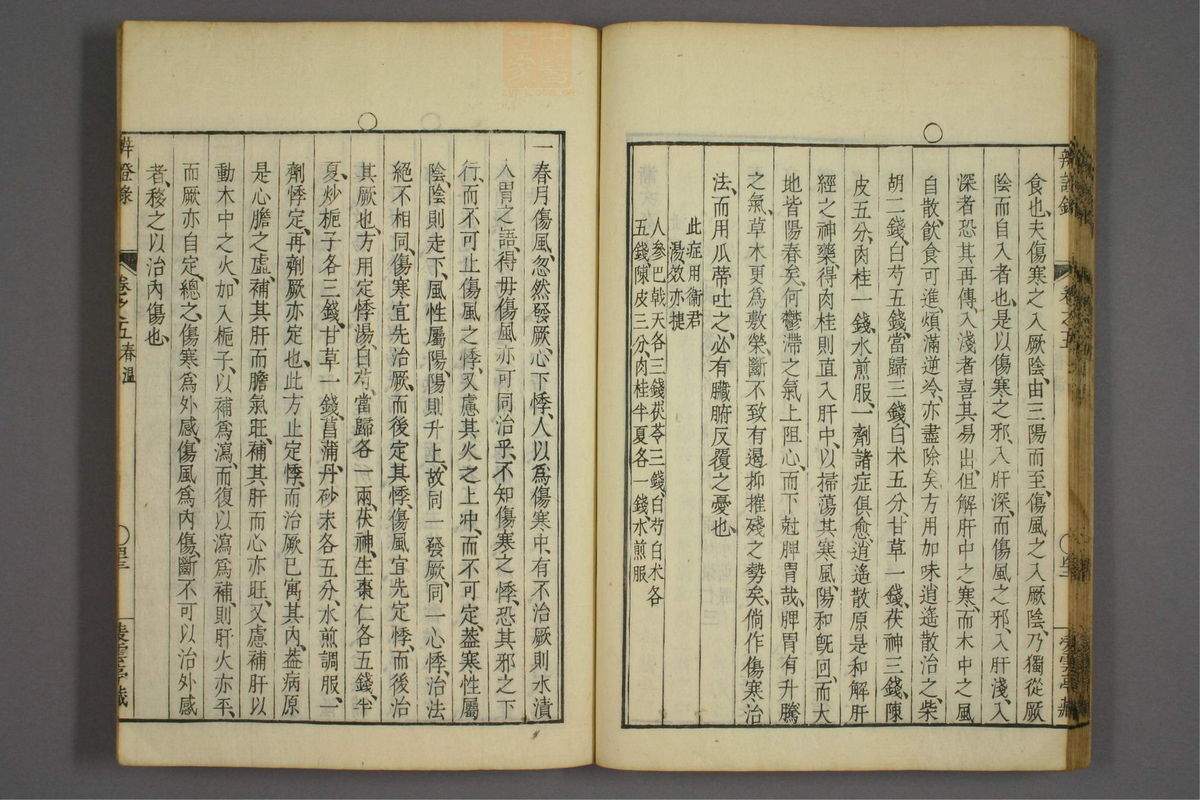 食也、夫傷寒之入厥陰、由三陽而至、傷風之入厥陰、乃獨從厥
陰而自入者也、是以傷寒之邪、入肝深、而傷風之邪、入肝淺、入
深者恐其再傳、入淺者喜其易出、但解肝中之寒、而木中之風
自散、飲食可進、煩滿逆冷、亦盡除矣、方用加味逍遙散治之、柴
胡二錢、白芍五錢、當歸三錢、白术五分、甘草一錢、茯神三錢、陳
皮五分、肉桂一錢、水煎服、一劑諸症俱愈、逍遙散原是和解肝
經之神藥、得肉桂則直入肝中、以掃蕩其寒風、陽和旣回、而大
地皆陽春矣、何鬱滯之氣上阻心、而下尅脾胃哉、脾胃有升騰
之氣、草木更爲敷榮、斷不致有遏抑摧殘之勢矣、倘作傷寒治
法、而用瓜蒂吐之、必有臟腑反覆之憂也、
此症用衛君
湯效亦捷
人參巴戟天各三錢茯苓三錢、白芍白术各
五錢、陳皮三分、肉桂半夏各一錢水煎服
一春月傷風、忽然發厥、心下悸、人以爲傷寒中、有不治厥則水漬
入胃之語、得毋傷風亦可同治乎、不知傷寒之悸、恐其邪之下
行、而不可止、傷風之悸、又慮其火之上冲、而不可定、葢寒性屬
陰、陰則走下、風性屬陽、陽則升上、故同一發厥、同一心悸、治法
絕不相同、傷寒宜先治厥、而後定其悸、傷風宜先定悸、而後治
其厥也、方用定悸湯、白芍、當歸各一兩、茯神、生棗仁各五錢、半
夏、炒梔子各三錢、甘草一錢、菖蒲、丹砂末各五分、水煎調服、一
劑悸定、再劑厥亦定也、此方止定悸、而治厥已寓其內、葢病原
是心膽之虛、補其肝而膽氣旺、補其肝而心亦旺、又慮補肝以
動木中之火、加入梔子、以補爲瀉、而復以瀉爲補、則肝火亦平、
而厥亦自定、總之、傷寒爲外感、傷風爲內傷、斷不可以治外感
者、移之以治內傷也、
辨證錄 卷之五 春溫